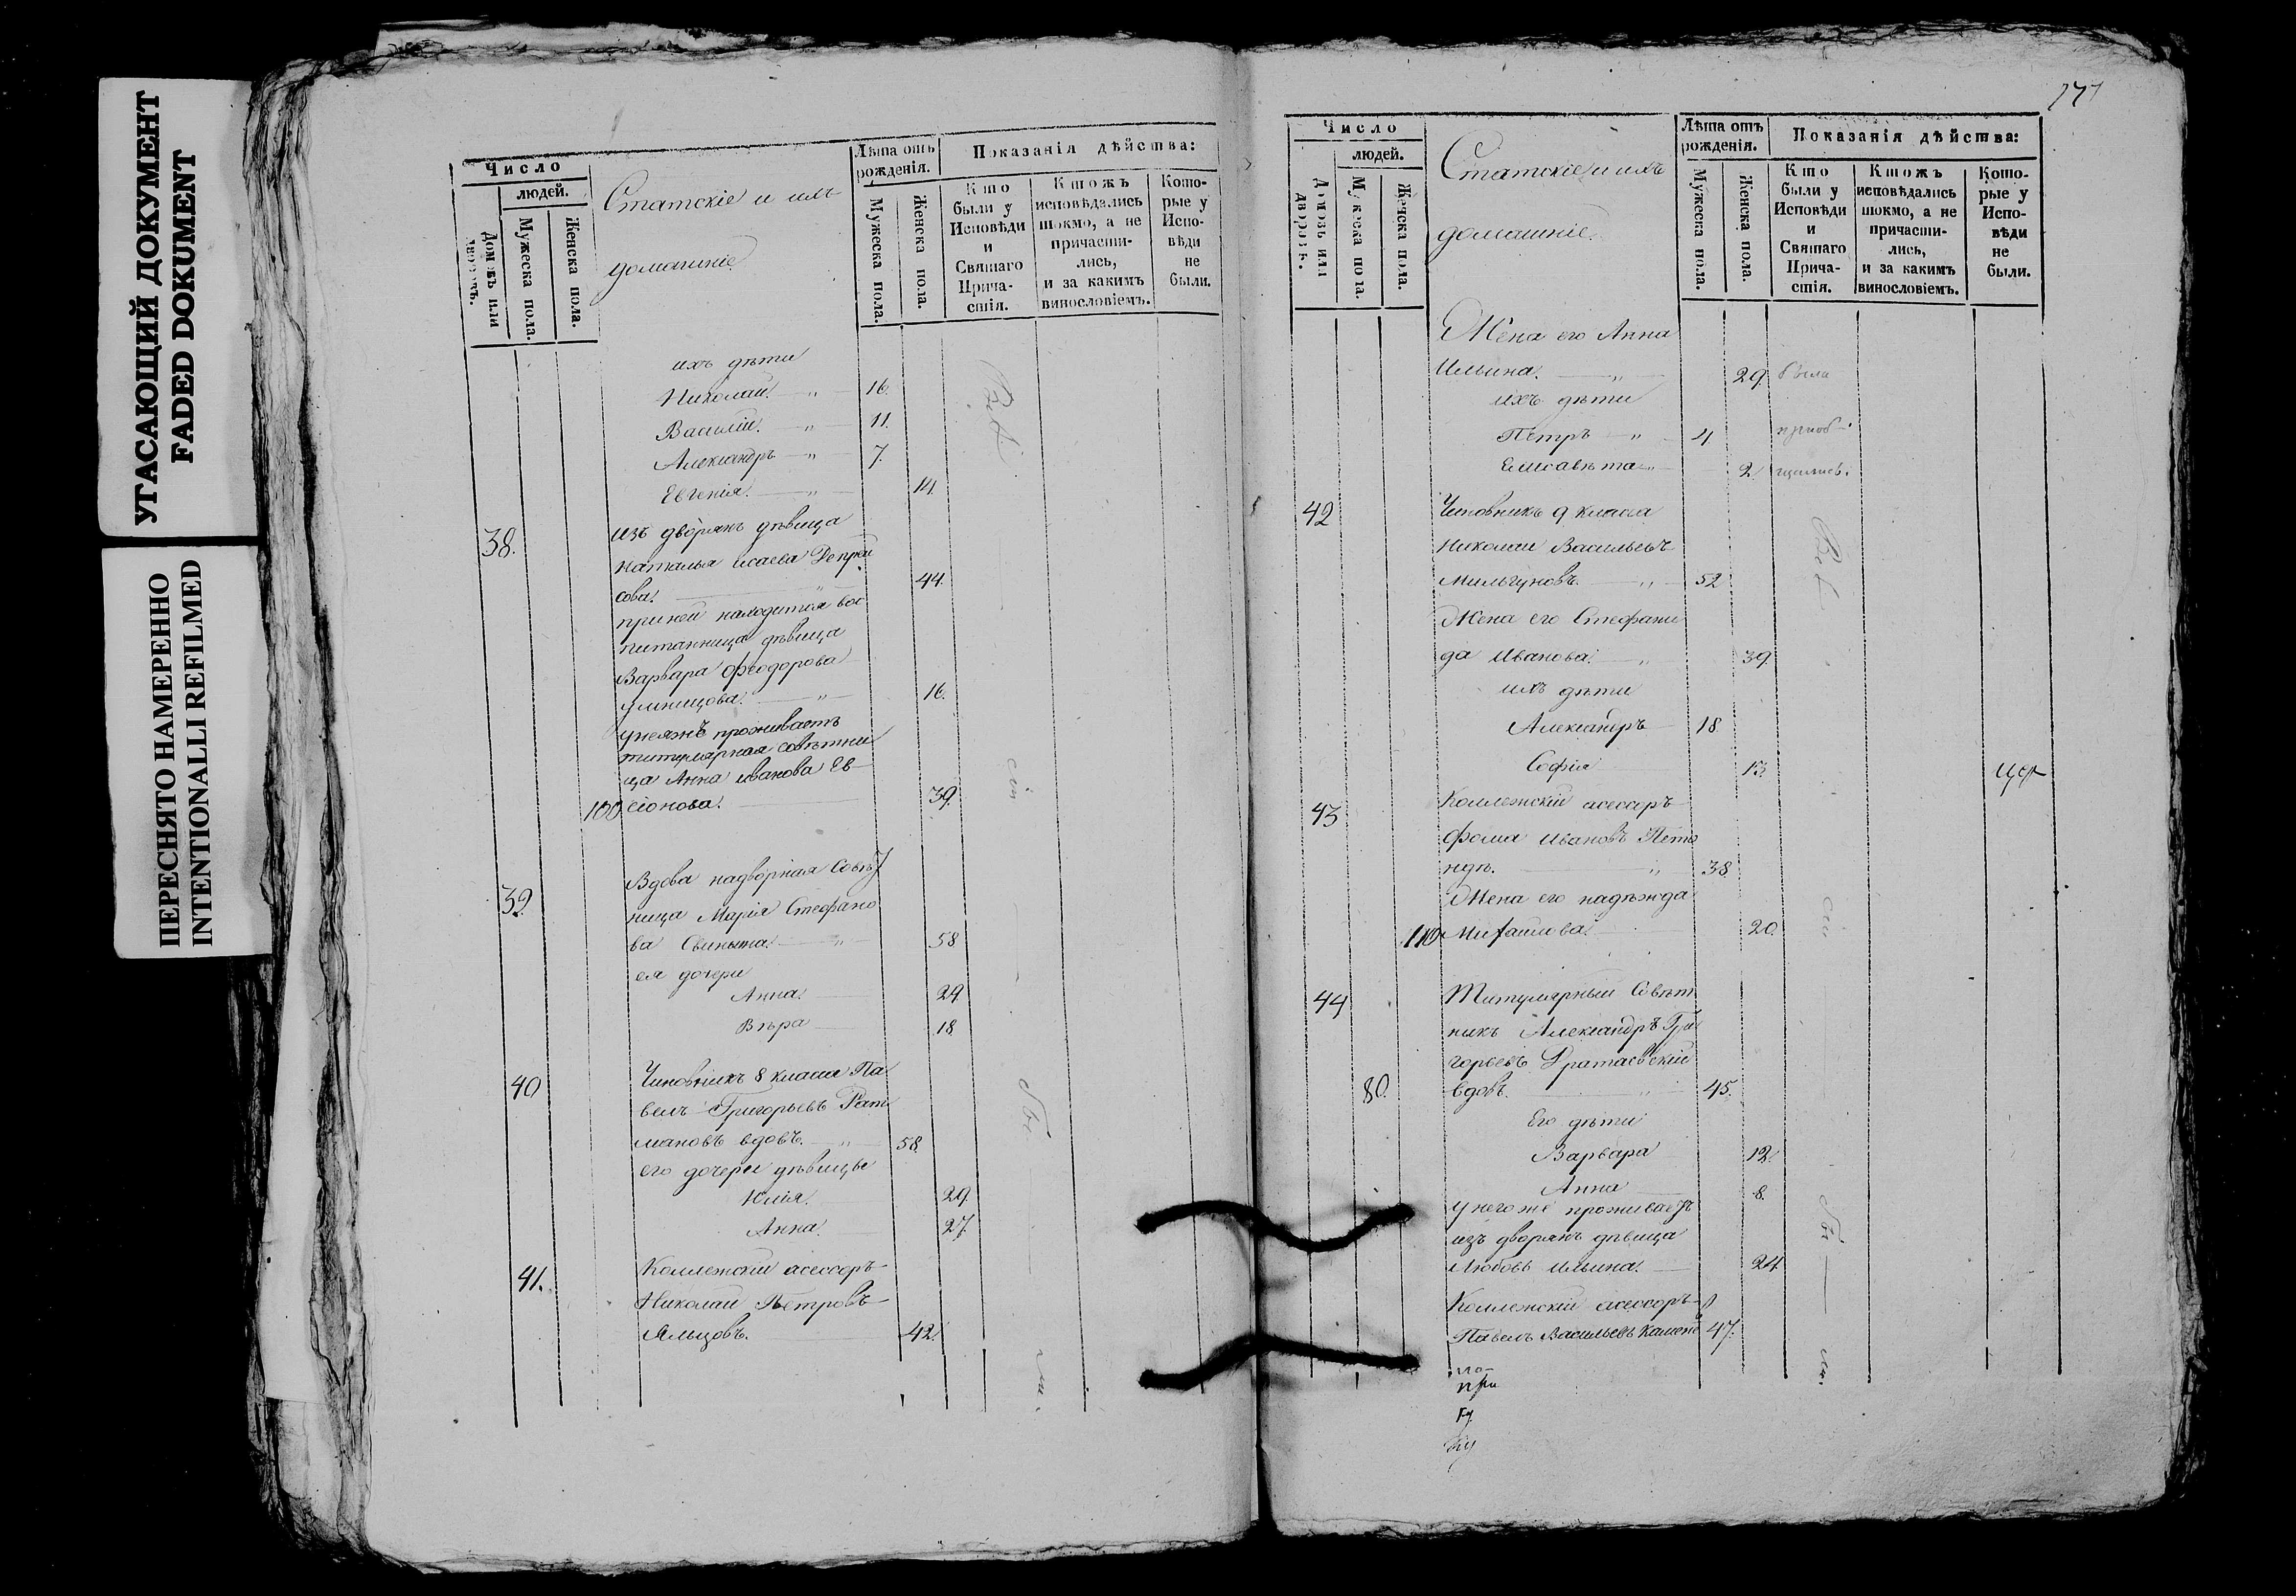 УГАСАЮЩИЙ ДОКУМЕНТ
FADED DOKUMENT
ПЕРЕСНЯТО НАМЕРЕННО
INTENTIONALLI REFILMED
Число
людей.
Домовъ или дворовъ.
Мужеска пола.
Женска пола.
Статскіе и ихъ
домашніе.
Лѣта отъ рожденія.
Мужеска пола.
Женска пола.
Показанія дѣйства:
Кто были у Исповѣди и Святаго Прича-стія.
Ктожъ исповѣдались токмо, а не причасти-лись, и за какимъ винословіемъ.
Кото-рые у Испо-вѣди не были.
ихъ дѣти
Николай. — „ — 16.
Василій. — „ — 11.
Александръ — „ — 7.
Евгенія. — „ — 14.
38. изъ дворянъ дѣвица
Наталья Исаева
сова. 44.
при ней находится вос
питанница дѣвица
Варвара Феодорова
— „ — 16.
у неяжъ проживаетъ
титулярная совѣтни
ца Анна Иванова Ев
100 сіонова. 39.
39. Вдова надворная Совѣт
ница Марія Стефано
ва Свиньина — „ — 58
ея дочери
Анна. 24
Вѣра 18
40 Чиновникъ 8 класса Па
велъ Григорьевъ Рат
мановъ вдовъ. — „ — 58.
его дочери дѣвицы
Юлія. 29.
Анна. 27.
41. Коллежскій асессоръ
Николай Петровъ
Яльцовъ. 42.
Всѣ
сіи
бы
ли.
171
Число
людей.
Домовъ или дворовъ.
Мужеска пола.
Женска пола.
Статскіе и ихъ
домашніе.
Лѣта отъ рожденія.
Мужеска пола.
Женска пола.
Показанія дѣйства:
Кто были у Исповѣди и Святаго Прича-стія.
Ктожъ исповѣдались токмо, а не причасти-лись, и за какимъ винословіемъ.
Кото-рые у Испо-вѣди не были.
Жена его Анна
Ильина. — „ — 29. была
ихъ дѣти
Петръ — „ — 4. приоб-
Елисавета — „ — 2. щились.
42 Чиновникъ 9 класса
Николай Васильевъ
Мильгуновъ. — „ — 52
Жена его Стефани
да Иванова. — „ 39.
ихъ дѣти
Александръ 18.
Софія 13.
43 Коллежскій асессоръ
Фома Ивановъ
„ 38.
Жена его Надежда
110 Михаилова. 20.
44 Титулярный Совѣт
никъ Александръ Гри
горьевъ
80. вдовъ. „ 45.
Его дѣти
Варвара 12.
Анна 8.
у негоже проживаетъ
изъ дворянъ дѣвица
Любовь Ильина. 24.
Коллежскій асессоръ
Павелъ Васильевъ 47.
Всѣ
сіи
бы
ли.